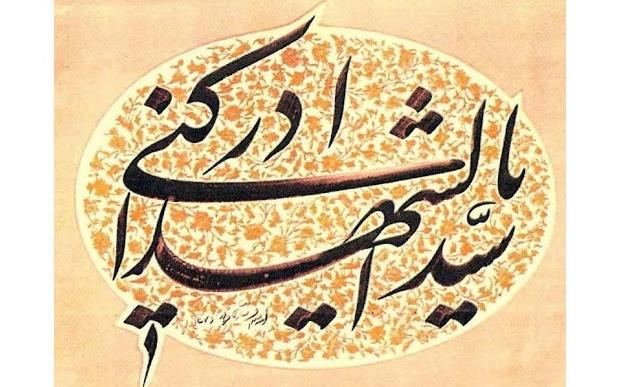 یا سیّد الشهدا ادرکنی